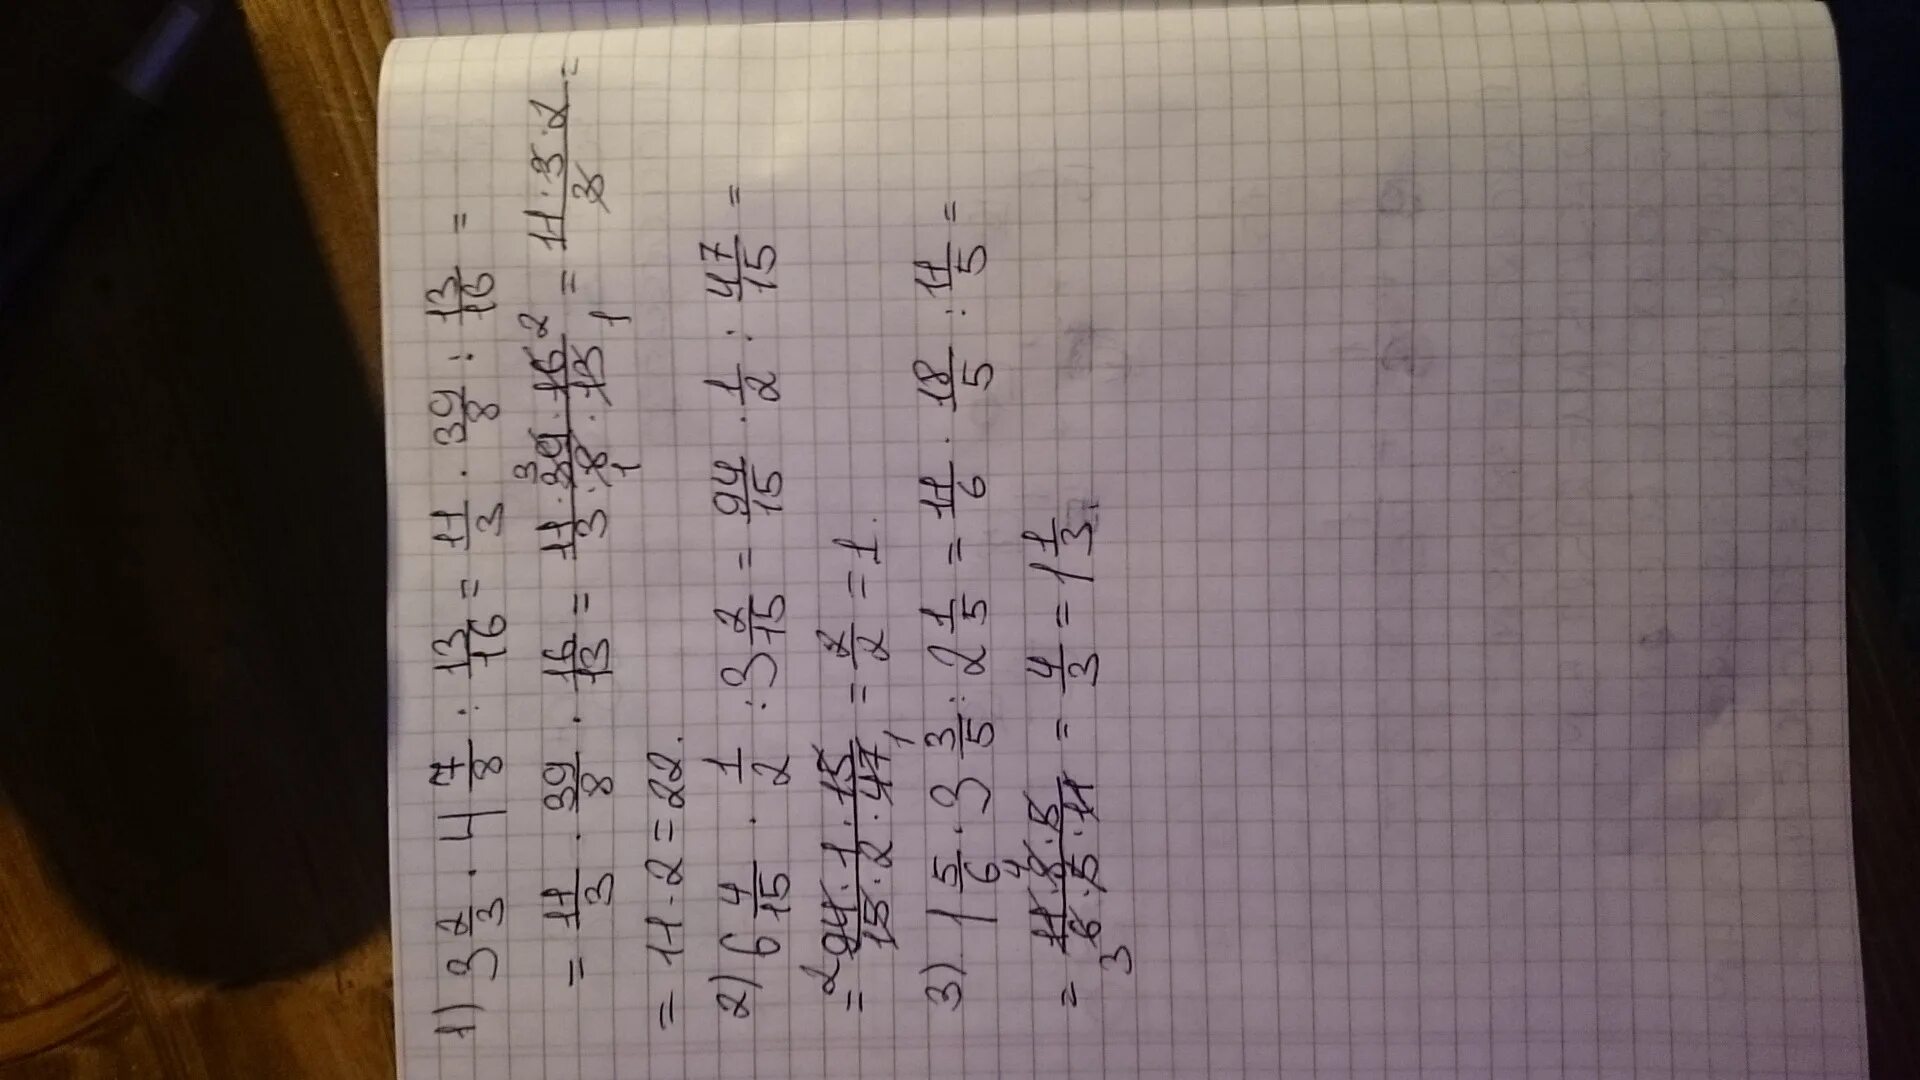 1) 3 2/3 · 4 7/8 : 13/16 = 11/3 · 39/8 : 13/16 =
= 11/3 · 39/8 · 16/13 = 11 · 39³ · 16² / 3 · 8₁ · 13₁ = 11 · 3 · 2 / 3 =
= 11 · 2 = 22.
2) 6 4/15 · 1/2 : 3 2/15 = 94/15 · 1/2 : 47/15 =
= ²94 · 1 · 15 / 15 · 2 · 47₁ = 2/2 = 1.
3) 1 5/6 · 3 3/5 : 2 1/5 = 11/6 · 18/5 : 11/5 =
= 11 · ⁴8 · 5 / ₃6 · 5 · 11 = 4/3 = 1 1/3.